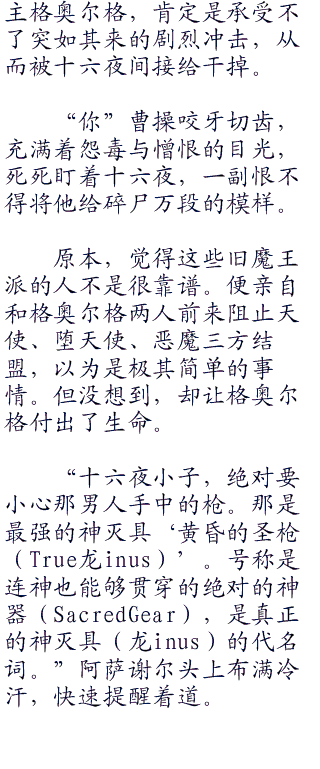 主格奥尔格，肯定是承受不
了突如其来的剧烈冲击，从
而被十六夜间接给干掉。
“你”曹操咬牙切齿，
充满着怨毒与憎恨的目光，
死死盯着十六夜，一副恨不
得将他给碎尸万段的模样。
原本，觉得这些旧魔王
派的人不是很靠谱。便亲自
和格奥尔格两人前来阻止天
使、堕天使、恶魔三方结
盟，以为是极其简单的事
情。但没想到，却让格奥尔
格付出了生命。
“十六夜小子，绝对要
小心那男人手中的枪。那是
最强的神灭具‘黄昏的圣枪
（True龙inus）’。号称是
连神也能够贯穿的绝对的神
器（SacredGear），是真正
的神灭具（龙inus）的代名
词。”阿萨谢尔头上布满冷
汗，快速提醒着道。